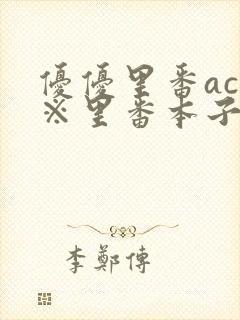 優優里番ac
※里番本子
李鄭傳